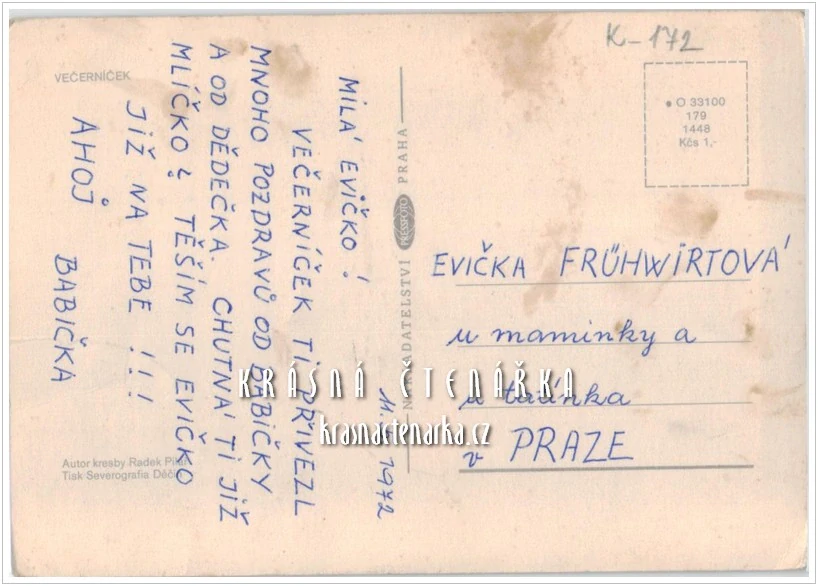 K-172
VEČERNÍČEK
• O 33100
179
1448
Kčs 1,-
MILÁ EVIČKO!
VEČERNÍČEK TI PŘIVEZL
MNOHO POZDRAVŮ OD BABIČKY
A OD DĚDEČKA. CHUTNÁ TI JIŽ
MLÍČKO? TĚŠÍM SE EVIČKO
JIŽ NA TEBE !!!
AHOJ BABIČKA
1972
NAKLADATELSTVÍ PRESSFOTO PRAHA
EVIČKA FRÜHWIRTOVÁ
u maminky a
u tatínka
v PRAZE
KRÁSNÁ ČTENÁŘKA
krasnactenarka.cz
Autor kresby Radek Pilař
Tisk Severografia Děčín